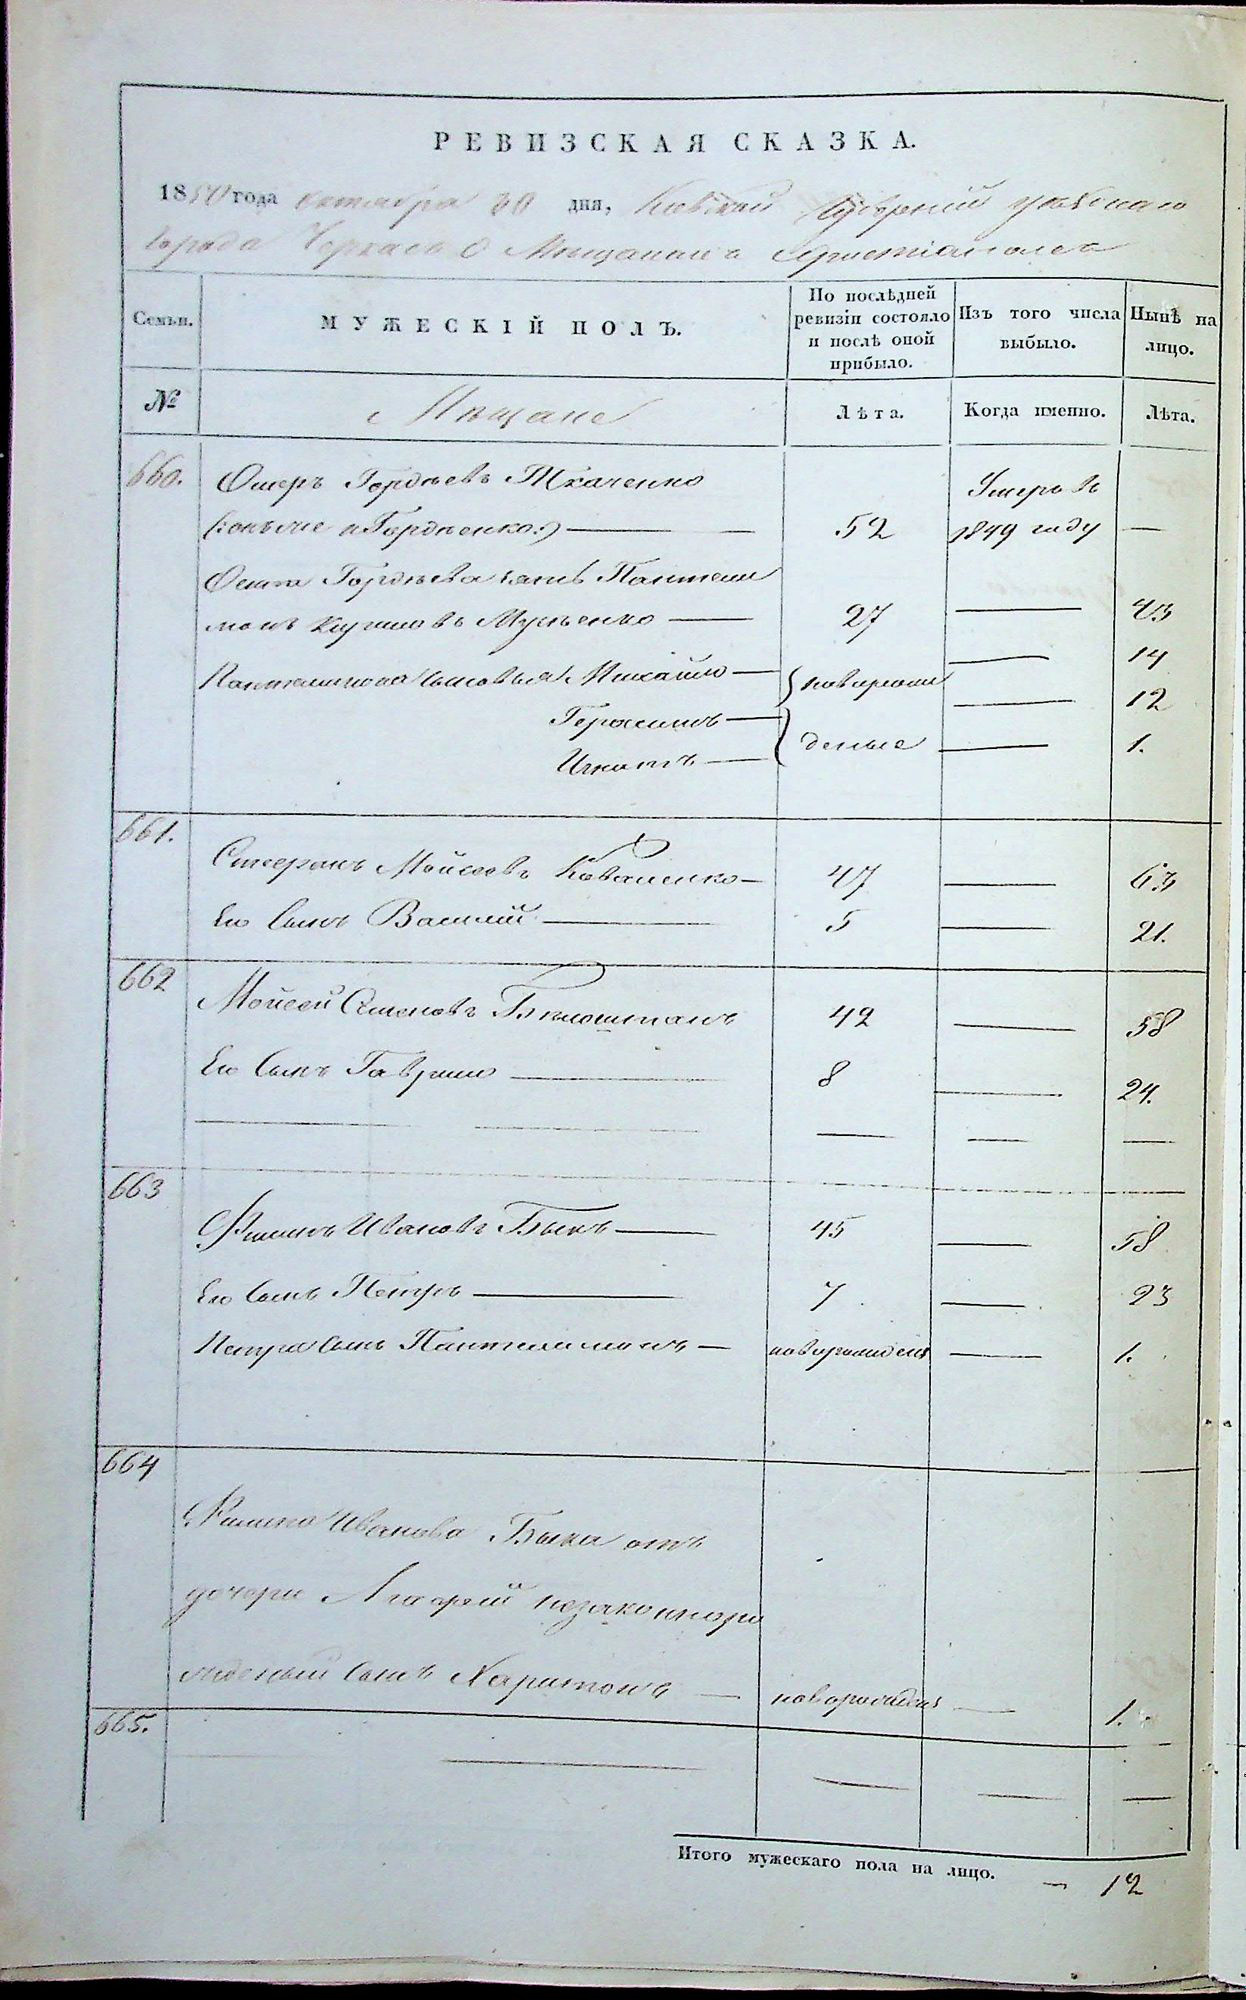 РЕВИЗСКАЯ СКАЗКА.
1850 года октября 30 дня, Киевской Губерніи уѣзднаго
города Черкасъ О Мѣщанахъ Християнахъ
Семьи.
МУЖЕСКІЙ ПОЛЪ.
По послѣдней ревизіи состояло и послѣ оной прибыло.
Изъ того числа выбыло.
Нынѣ на лицо.
№
Мѣщане
Лѣта.
Когда именно.
Лѣта.
660. Гордѣевъ Ткаченко Умеръ въ
Гордѣенко:) — 52 1849 году —
Гордѣева Пантели
монъ — 27 — 43
Пантелимона сыновья Михайло — новорож — 14
Герасимъ — — 12
Игнатъ — деные — 1.
661.
Стефанъ Мойсеевъ Коваленко — 47 — 63
Его Сынъ Василий — 5 — 21.
662
Мойсей Семеновъ Бѣлоштанъ 42 — 58
Его Сынъ Гаврило — 8 — 24.
— — — — —
663
Филипъ Ивановъ Быкъ — 45 — 58
Его Сынъ Петръ — 7 — 23
Петра Сынъ Пантелимонъ — новорожденъ — 1.
664
Филипа Иванова Быка отъ
дочери Агафіи незаконноро
жденый Сынъ Харитонъ — новорожденъ — 1.
665.
— — — —
Итого мужескаго пола на лицо. — 12